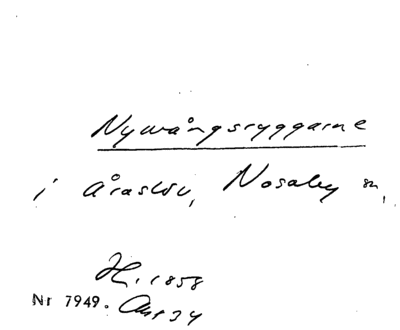 Nywångsryggarne
i Åraslöv, Nosaby sn,
H. 1858
Nr 7949. Akt 34